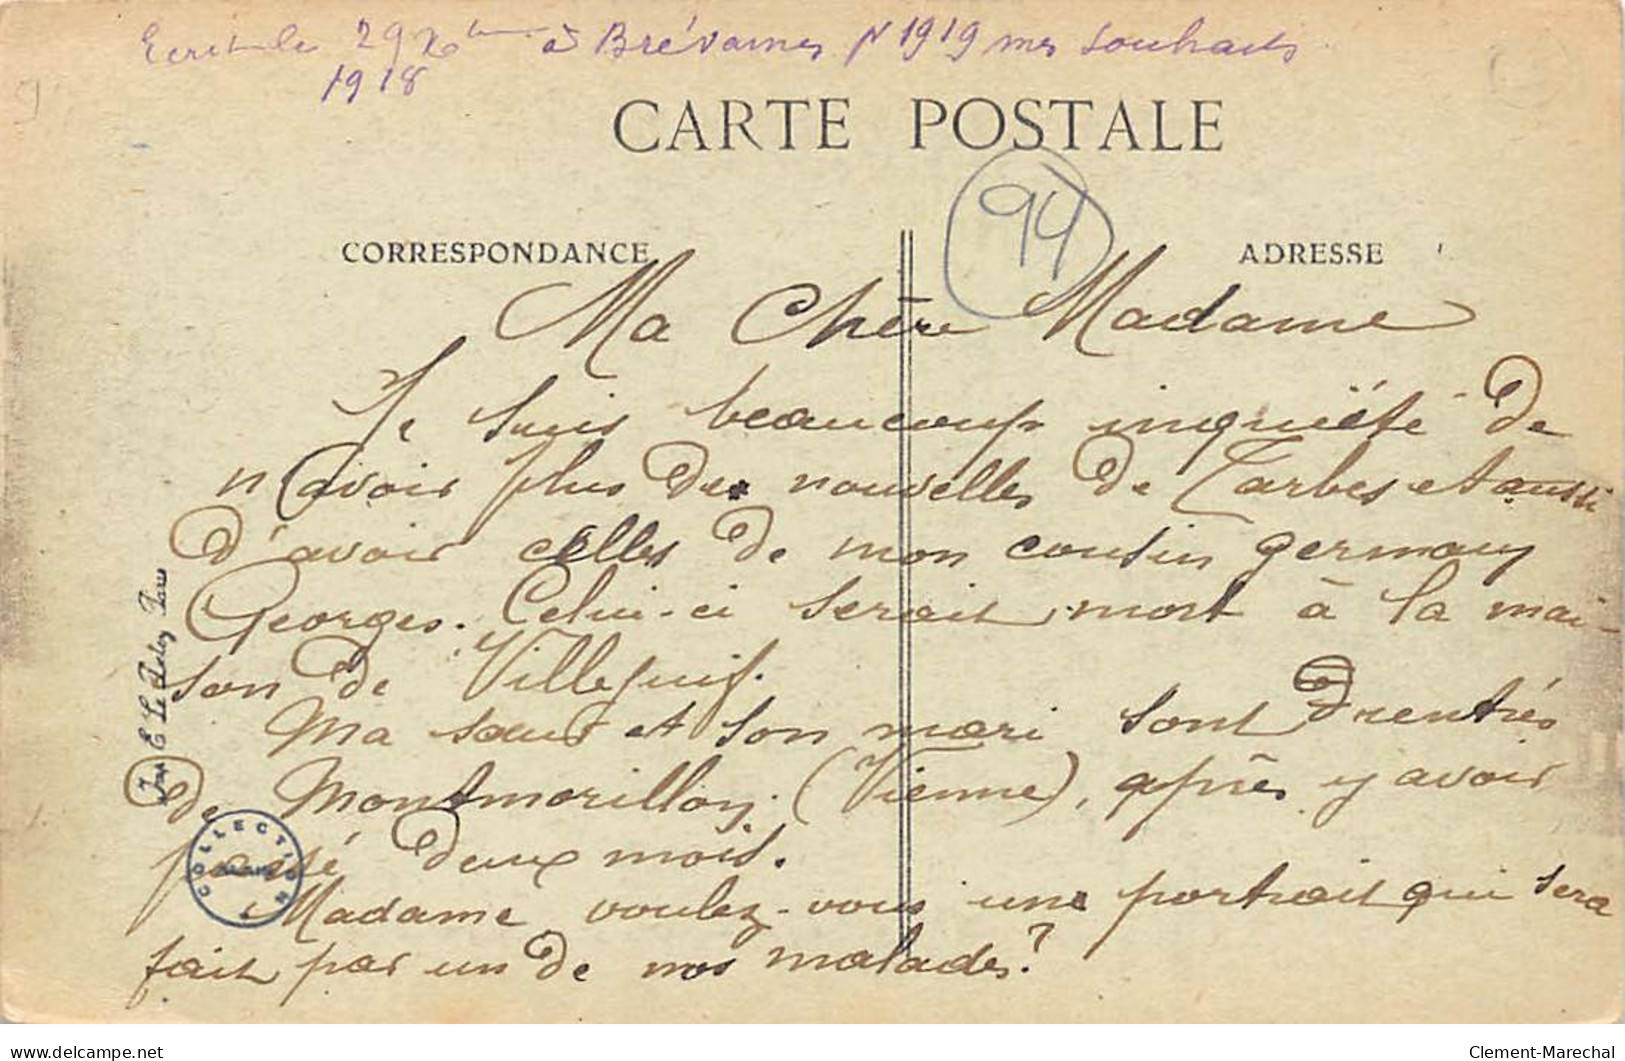 Ecrit le 29 Xbre à Brévannes pr 1919 mes souhaits
1918
CARTE POSTALE
94
CORRESPONDANCE
ADRESSE
Ma Chère Madame
Je suis beaucoup inquiété de
n'avoir plus de nouvelles de Tarbes et aussi
d'avoir celles de mon cousin germain
Georges. Celui-ci serait mort à la mai-
son de Villejuif.
Ma sœur et son mari sont rentrés
de Montmorillon (Vienne), après y avoir
passé deux mois.
Madame voulez-vous un portrait qui sera
fait par un de nos malades?
Imp E Le Deley Paris
COLLECTION
© delcampe.net
Clement-Marechal